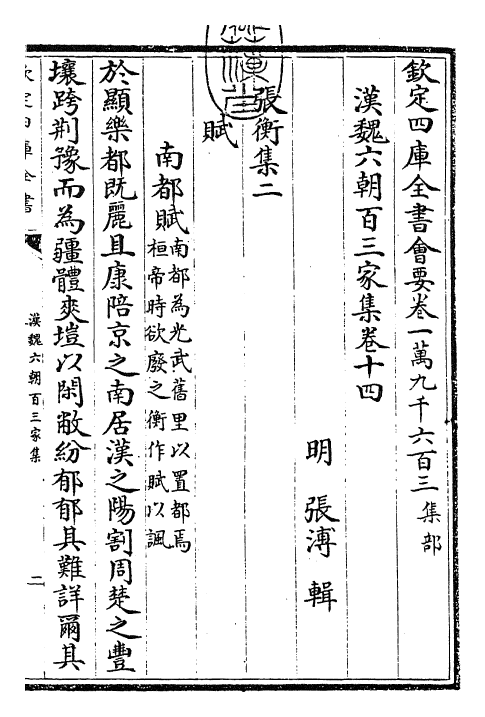 欽定四庫全書會要卷一萬九千六百三 集部
漢魏六朝百三家集卷十四
明 張溥 輯
張衡集二
賦
南都賦 南都為光武舊里以置都焉
桓帝時欲廢之衡作賦以諷
於顯樂都既麗且康陪京之南居漢之陽割周楚之豐
壤跨荆豫而為疆體爽塏以閑敞紛郁郁其難詳爾其
欽定四庫全書
漢魏六朝百三家集
二